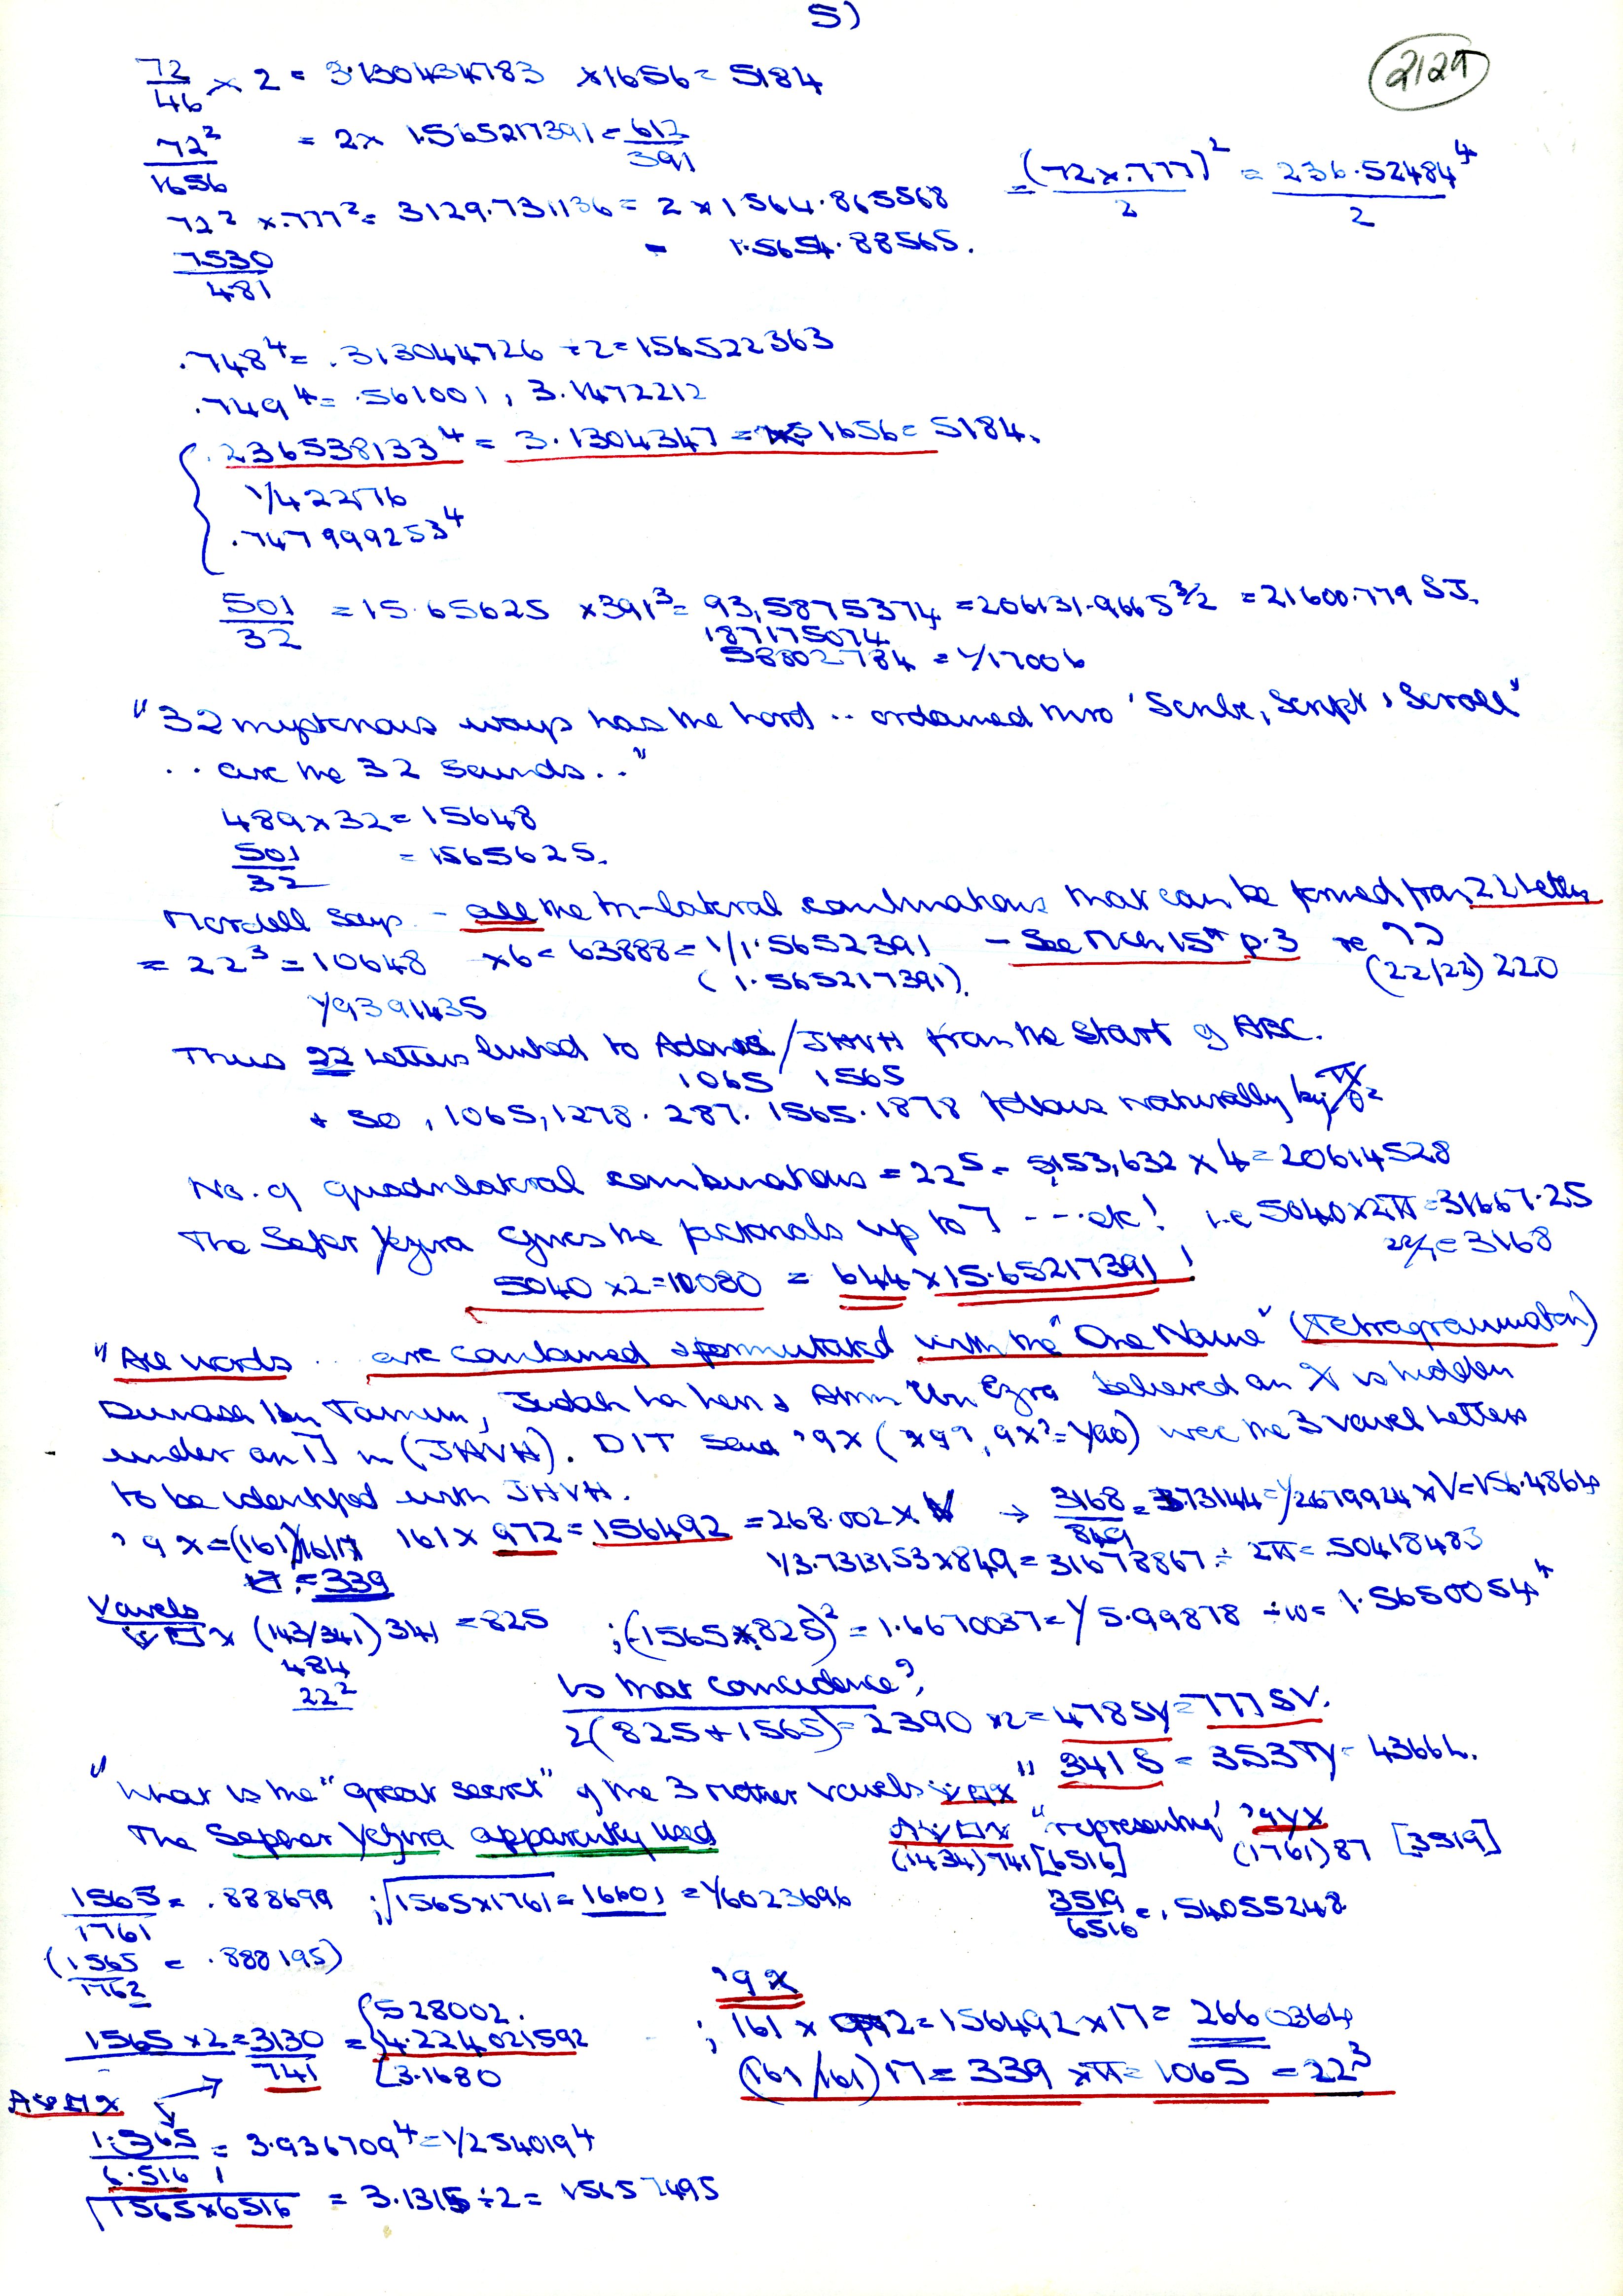 5)
2129
72/46 × 2 = 3.130434783 ×1656 = 5184
72²/1656 = 2× 1.565217391 = 612/391
72² ×.777² = 3129.731136 = 2×1564.865568 = (72×.777)²/2 = 236.52484⁴/2
7530/481 = 1.5654.88565.
.748⁴ = .313044726 ÷2 = 156522363
.749⁴ = .561001, 3.1472212
.236538133⁴ = 3.1304347 = 1656 = 5184.
1/42276
.747999253⁴
501/32 = 15.65625 ×391³ = 93,5875374 = 206131.9665 3/2 = 21600.779 SJ.
187175074
58802784 = 1/17006
"32 mysterious ways has the Lord .. ordained thro 'Scribe, Script & Scroll"
.. are the 32 sounds.."
489×32 = 15648
501/32 = 1565625.
Mordell says - all the tri-lateral combinations that can be formed from 22 letters
= 22³ = 10648 ×6 = 63888 = 1/1.5652391 - See Mch 15th p.3 re
(1.565217391). (22/22) 220
1/9391435
Thus 22 letters linked to Adonai/JHVH from the start of ABC.
1065 1565
+ so, 1065, 1278. 287. 1565. 1878 follows naturally by
No. of quadrilateral combinations = 22⁵ = 5,153,632 × 4 = 20614528
The Sefer Yezira gives the factorials up to 7 --- etc! i.e 5040×2π = 31667.25
22/7 = 3168
5040 ×2 = 10080 = 644×15.65217391 !
"All words .. are contained & permutated with the "One Name" (Tetragrammaton)
Dunash Ibn Tamim, Judah ha Levi & Abm Ibn Ezra believed an א is hidden
under an ה in (JHVH). DIT said were the 3 vowel letters
to be identified with JHVH.
161 × 972 = 156492 = 268.002 × → 3168/849 = 3.73144 = 1/2679924 × V = 156.4864
1/3.7313153×849 = 31678867 ÷ 2π = .50418483
= 339
Vowels (143/341) 341 = 825 ; (1565×825)² = 1.6670037 = 1/5.99878 ÷10 = 1.5650054⁴
484
22²
Is that coincidence?
2(825+1565) = 2390 ×2 = 478SY = 777SV.
"What is the "great secret" of the 3 mother vowels " 341S = 353πy = 43664.
The Sepher Yezira apparently used "representing'
(1434) 741 [6516] (1761) 87 [3519]
1565/1761 = .888699 ; √1565×1761 = 16601 = 1/6023696 3519/6516 = .54055248
(1565/1762 = .888195)
1565 ×2 = 3130/741 = 528002.
4.224021592
3.1680
; 161 × 972 = 156492×17 = 2660364
(161/161) 17 = 339 ×π = 1065 = 22³
1.565/6.516 = 3.936709⁴ = 1/254019⁴
√1565×6516 = 3.1315 ÷2 = 15657495